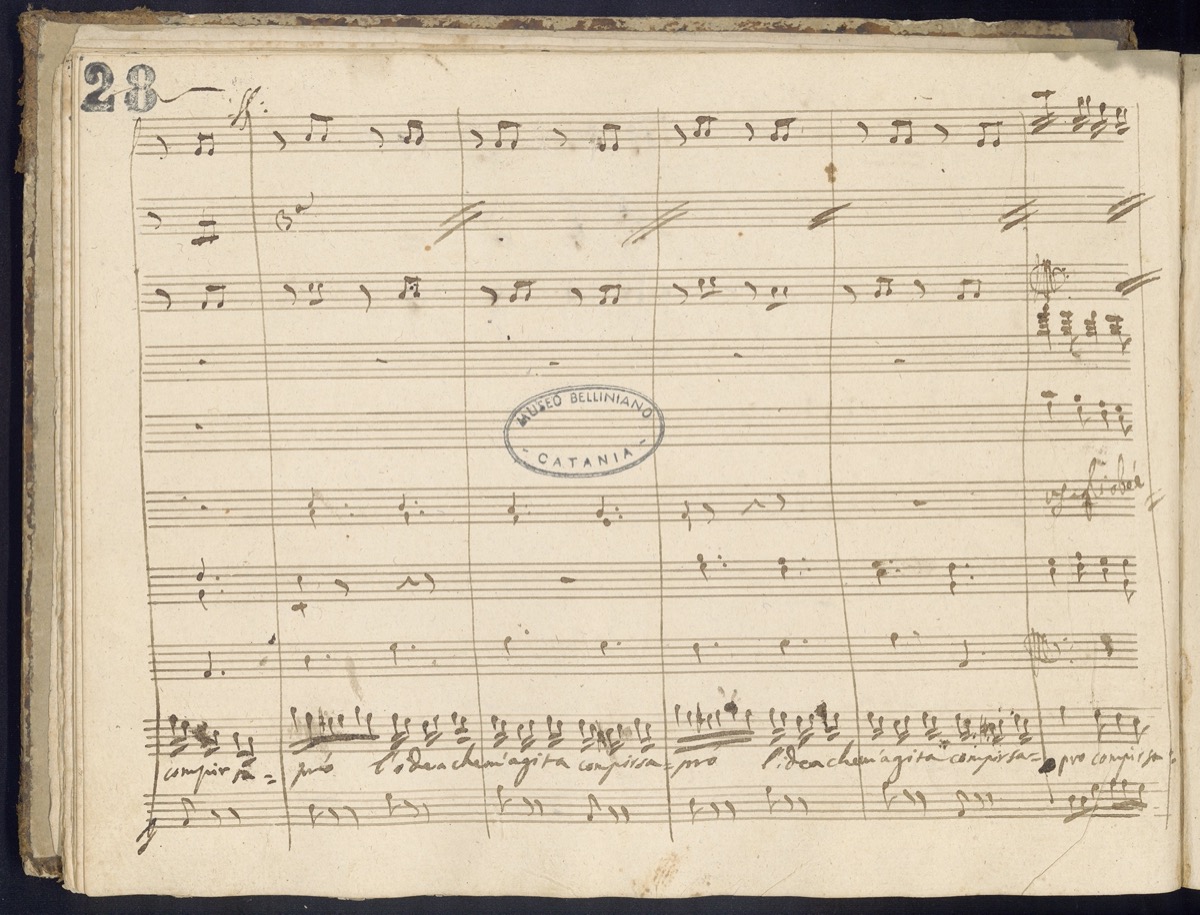 28
MUSEO BELLINIANO
- CATANIA -
compir sa= pró l'idea che m'agita compir sa=pró l'idea che m'agita compir sa= pro compir sa=